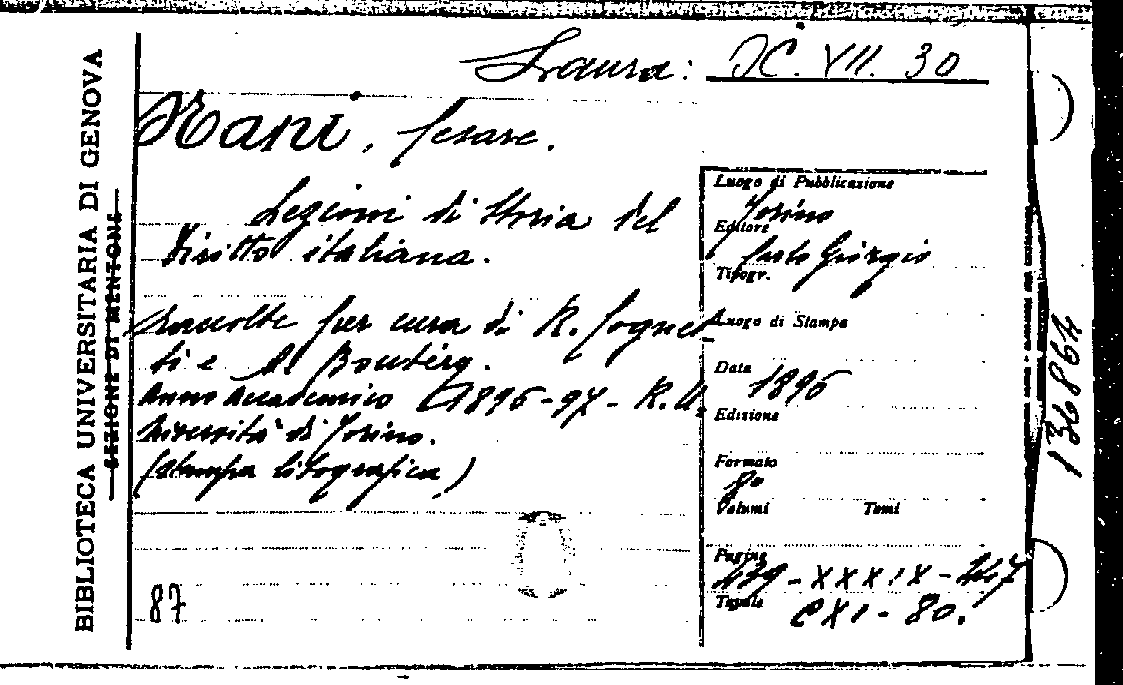 Laura: IC. VII. 30
BIBLIOTECA UNIVERSITARIA DI GENOVA
SEZIONE DI MENTONE
Nani, Cesare.
Lezioni di Storia del
Diritto italiano.
Raccolte per cura di R. Cognet-
ti e A. Boutérq.
Anno Accademico 1896-97 - R. U.
niversità di Torino.
(Stampa litografica)
87
Luogo di Pubblicazione
Torino
Editore
Carlo Giorgio
Tipogr.
Luogo di Stampa
Data
1896
Edizione
Formato
8°
Volumi Tomi
Pagine
439 - XXXIX - 247
Tavole
CXI - 80.
136864